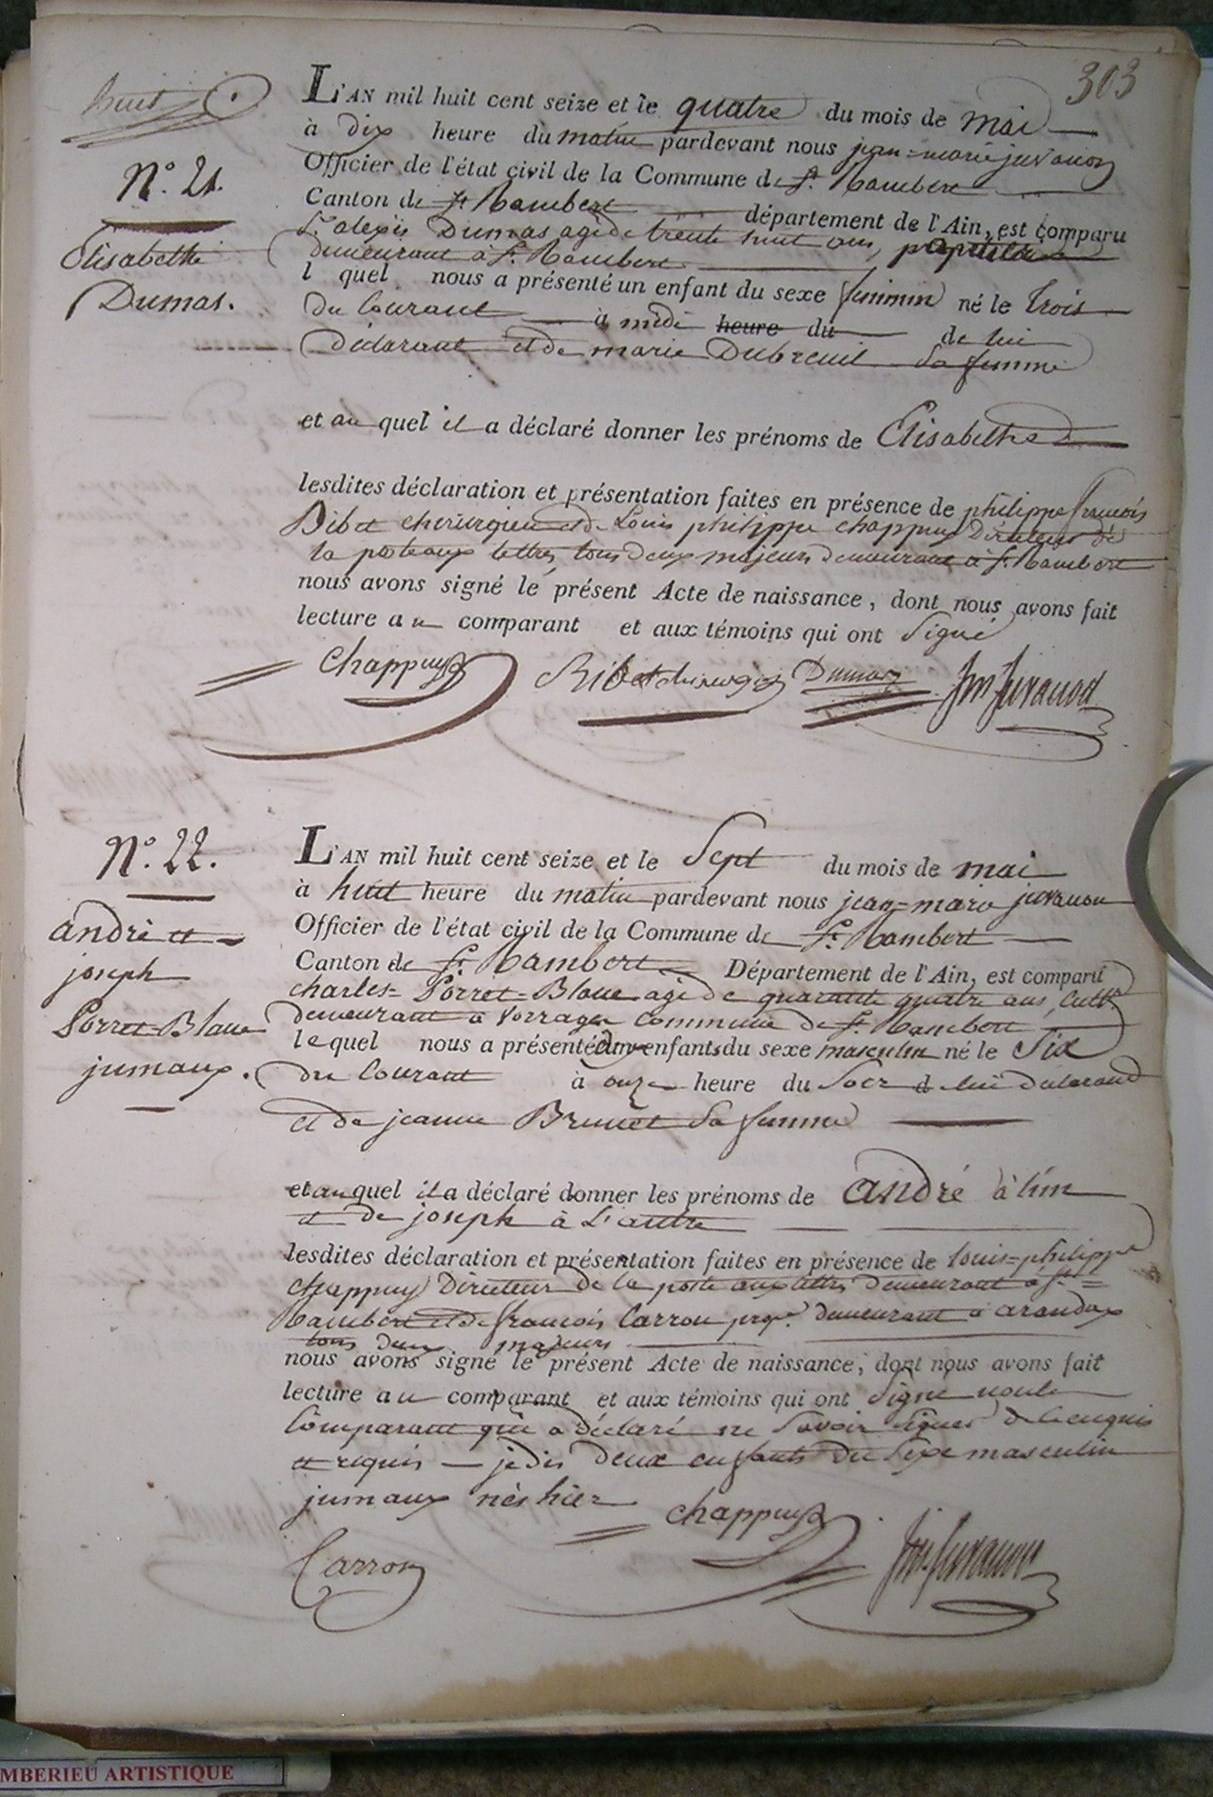 303
huit
L'AN mil huit cent seize et le quatre du mois de mai
à dix heure du matin pardevant nous jean=marie juvanon
N.° 21.
Officier de l'état civil de la Commune de St. Rambert
Canton de St Rambert département de l'Ain, est comparu
Sr. alexis Dumas agé de trente huit ans,
Elisabethe
demeurant à St. Rambert
l quel nous a présenté un enfant du sexe feminin né le trois
Dumas.
du Courant à midi heure du de lui
Déclarant et de marie Dubreuil Sa femme
et au quel il a déclaré donner les prénoms de Elisabethe
lesdites déclaration et présentation faites en présence de philippe francois
Ribet chirurgien et de Louis philippe chappuy Directeur de
la poste aux lettres, tous deux majeurs demeurant à St. Rambert
nous avons signé le présent Acte de naissance, dont nous avons fait
lecture au comparant et aux témoins qui ont Signé
Chappuy Ribet chirurgien Dumas Jm Juvanon
N.° 22.
L'AN mil huit cent seize et le Sept du mois de mai
à huit heure du matin pardevant nous jean=marie juvanon
andré et
Officier de l'état civil de la Commune de St. Rambert
joseph
Canton de St. Rambert Département de l'Ain, est comparu
charles= Porret=Blanc agé de quarante quatre ans, cultr.
Porret=Blanc
demeurant à Vorrages Commune de St. Rambert
lequel nous a présenté deux enfants du sexe masculin né le Six
jumaux.
du Courant à onze heure du Soir de lui déclarant
et de jeanne Brunet Sa femme
et au quel il a déclaré donner les prénoms de andré à l'un
et de joseph à L'autre
lesdites déclaration et présentation faites en présence de louis=philippe
chappuy Directeur de la poste aux lettres demeurant à St=
Rambert et de francois Carron propr. demeurant à arandas
tous deux majeurs
nous avons signé le présent Acte de naissance, dont nous avons fait
lecture au comparant et aux témoins qui ont Signé non le
Comparant qui a déclaré ne Savoir Signer de ce enquis
et requis — je dis deux enfants du Sexe masculin
jumaux nés hier
chappuy
Carron Jm Juvanon
MBERIEU ARTISTIQUE